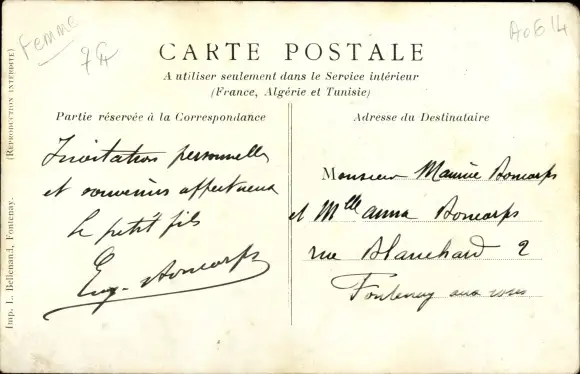 Femme
A0614
CARTE POSTALE
A utiliser seulement dans le Service intérieur
(France, Algérie et Tunisie)
Partie réservée à la Correspondance
Adresse du Destinataire
Invitations personnelles
et souvenirs affectueux
le petit fils
Eug. Boncorps
Monsieur Maurice Boncorps
et Mlle anna Boncorps
rue Blanchard 2
Fontenay aux roses
Imp. L. Bellenand, Fontenay.
(REPRODUCTION INTERDITE)